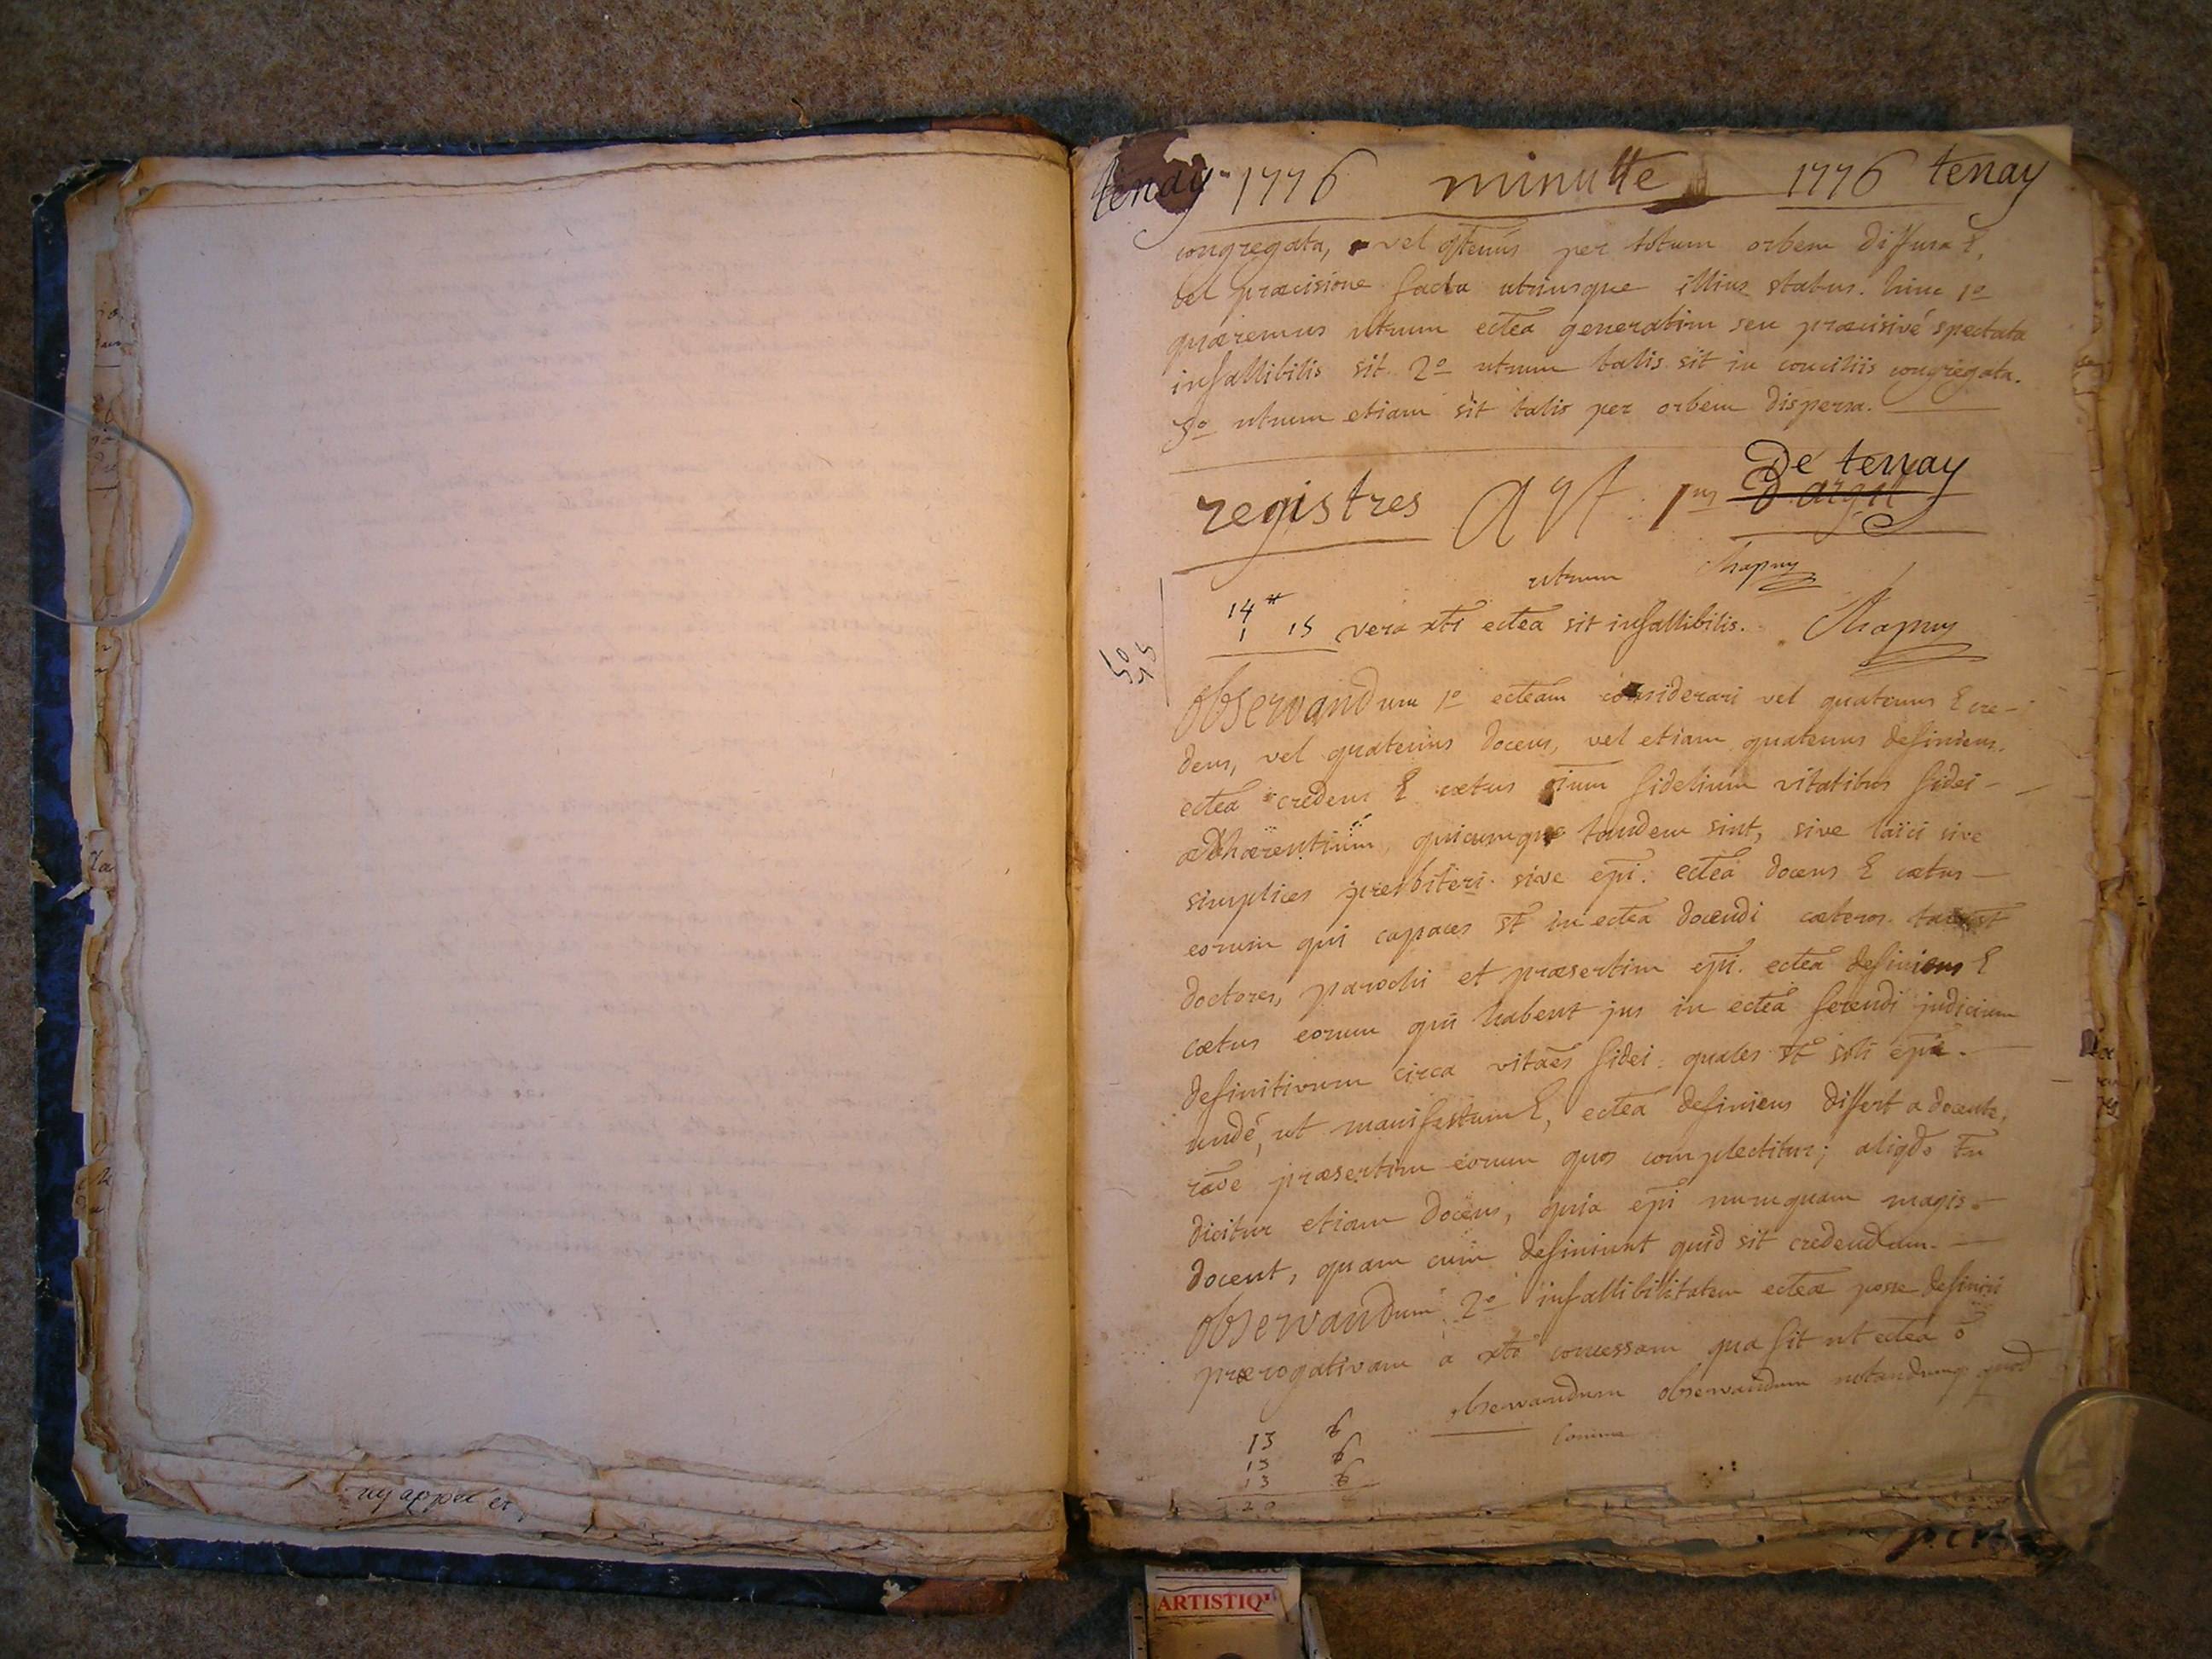 tenay 1776 minutte 1776 tenay
congregata, vel q̄tenus per totum orbem diffusa ē,
vel præcisione facta utriusque illius status. hinc 1º
quæremus utrum ecl̄ea generatim seu præcisivé spectata
infallibilis sit. 2º utrum talis sit in conciliis congregata.
3º utrum etiam sit talis per orbem dispersa.
De tenay
registres
utrum Chapuy
14
1 15 vera xti ecl̄ea sit infallibilis. Chapuy
observandum 1º ecl̄eam considerari vel quatenus ē cre-
dens, vel quatenus docens, vel etiam quatenus definiens.
ecl̄ea credens ē cœtus oīum fidelium v̄itatibus fidei
adhærentium quicumque tandem sint, sive laïci sive
simplices presbiteri sive ep̄i. ecl̄ea docens ē cœtus
eorum qui capaces st̄ in ecl̄ea docendi cæteros
doctores, parochi et præsertim ep̄i. ecl̄ea definiens ē
cœtus eorum qui habent jus in ecl̄ea ferendi judicium
definitivum circa v̄itaēs fidei: quales st̄ soli ep̄i.
undé, ut manifestum ē, ecl̄ea definiens differt a docente,
rāoe præsertim eorum quos complectitur; aliqd̄o tn̄
dicitur etiam docens, quia ep̄i numquam magis
docent, quam cum definiunt quid sit credendum.
observandum 2º infallibilitatem ecl̄eæ posse definiri
prærogativam a xto concessam qua fit ut ecl̄ea ō
observandum observandum notandumq̄ quod
comme
13 6
13 6
13 6
20
ny appel et
ARTISTIQU